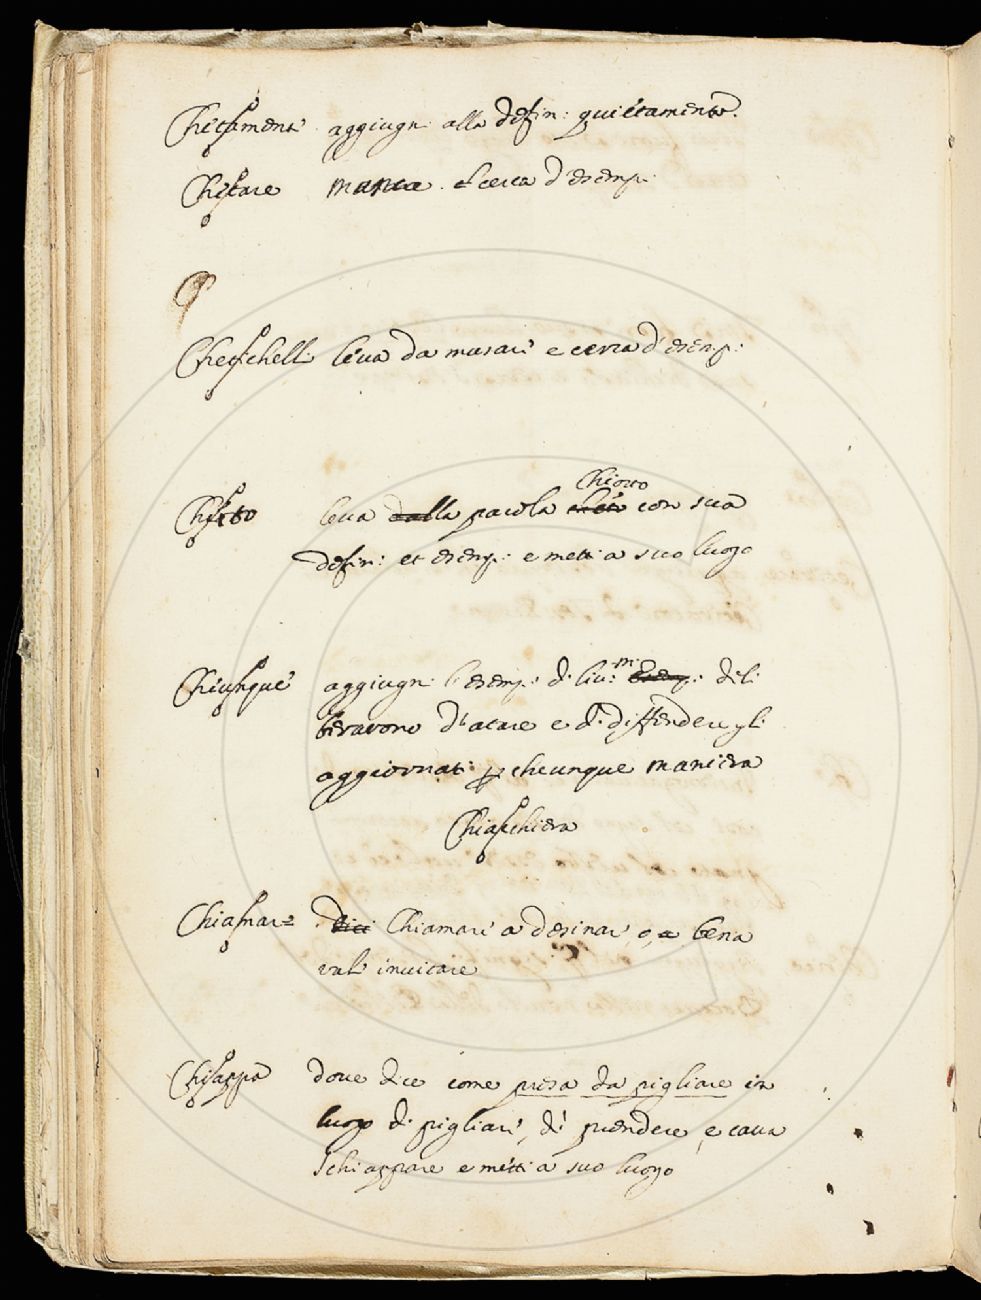 Chetament' aggiugn: alla defin: quietamente.
Chetare manca. et cerca d'esemp:
Chetichelli leva da musare e cerca d'esemp:
Chioto leva dalla parola Chioto con sua
defin: et esemp: e metti a suo luogo
Chiunque aggiugn: l'esemp: di liv: m: esemp: deli:
beravono d'atare e di diffendere gli
aggiornati per cheunque maniera
Chiacchiera
Chiamare dici Chiamare a desinare, o, a bere
vale invitare
Chiappa dove dice come presa da pigliare in
luogo di pigliare, dì prendere, e cava
Schiappare e metti a suo luogo